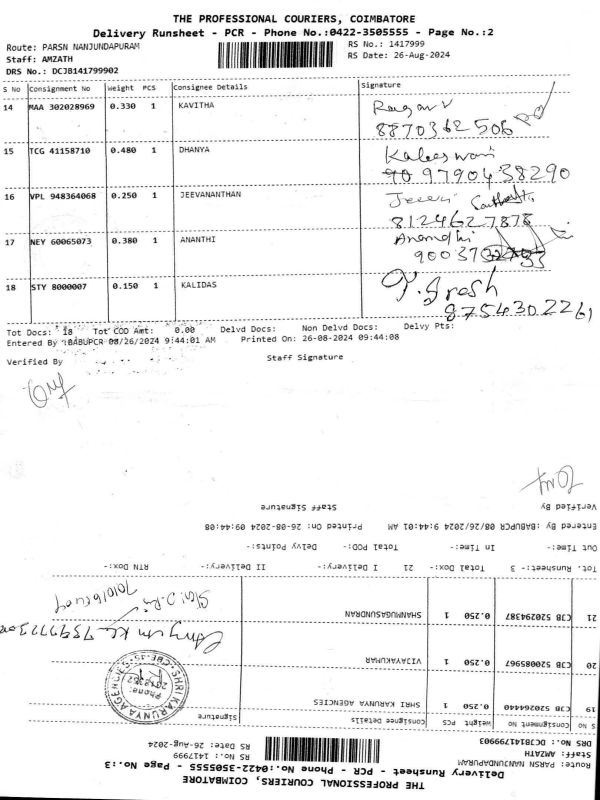 THE PROFESSIONAL COURIERS, COIMBATORE
Delivery Runsheet - PCR - Phone No.:0422-3505555 - Page No.:2
Route: PARSN NANJUNDAPURAM RS No.: 1417999
Staff: AMZATH RS Date: 26-Aug-2024
DRS No.: DCJB141799902
S No Consignment No Weight PCS Consignee Details Signature
14 MAA 302028969 0.330 1 KAVITHA
8870362506
15 TCG 41158710 0.480 1 DHANYA Kaleeswari
9790438290
16 VPL 948364068 0.250 1 JEEVANANTHAN
8124627878
17 NEY 60065073 0.380 1 ANANTHI
18 STY 8000007 0.150 1 KALIDAS
8754302261
Tot Docs: 18 Tot COD Amt: 0.00 Delvd Docs: Non Delvd Docs: Delvy Pts:
Entered By :BABUPCR 08/26/2024 9:44:01 AM Printed On: 26-08-2024 09:44:08
Verified By Staff Signature
THE PROFESSIONAL COURIERS, COIMBATORE
Delivery Runsheet - PCR - Phone No.:0422-3505555 - Page No.:3
Route: PARSN NANJUNDAPURAM RS No.: 1417999
Staff: AMZATH RS Date: 26-Aug-2024
DRS No.: DCJB141799903
S No Consignment No Weight PCS Consignee Details Signature
19 CJB 520264440 0.250 1 SHRI KARUNYA AGENCIES
SHRI KARUNYA AGENCIES
Phone:
20 CJB 520085967 0.250 1 VIJAYAKUMAR
21 CJB 520294387 0.250 1 SHANMUGASUNDRAN
Tot. Runsheet:- 3 Total Dox:- 21 I Delivery:- II Delivery:- RTN Dox:-
Out Time:- In Time:- Total POD:- Delvy Points:-
Entered By :BABUPCR 08/26/2024 9:44:01 AM Printed On: 26-08-2024 09:44:08
Verified By Staff Signature